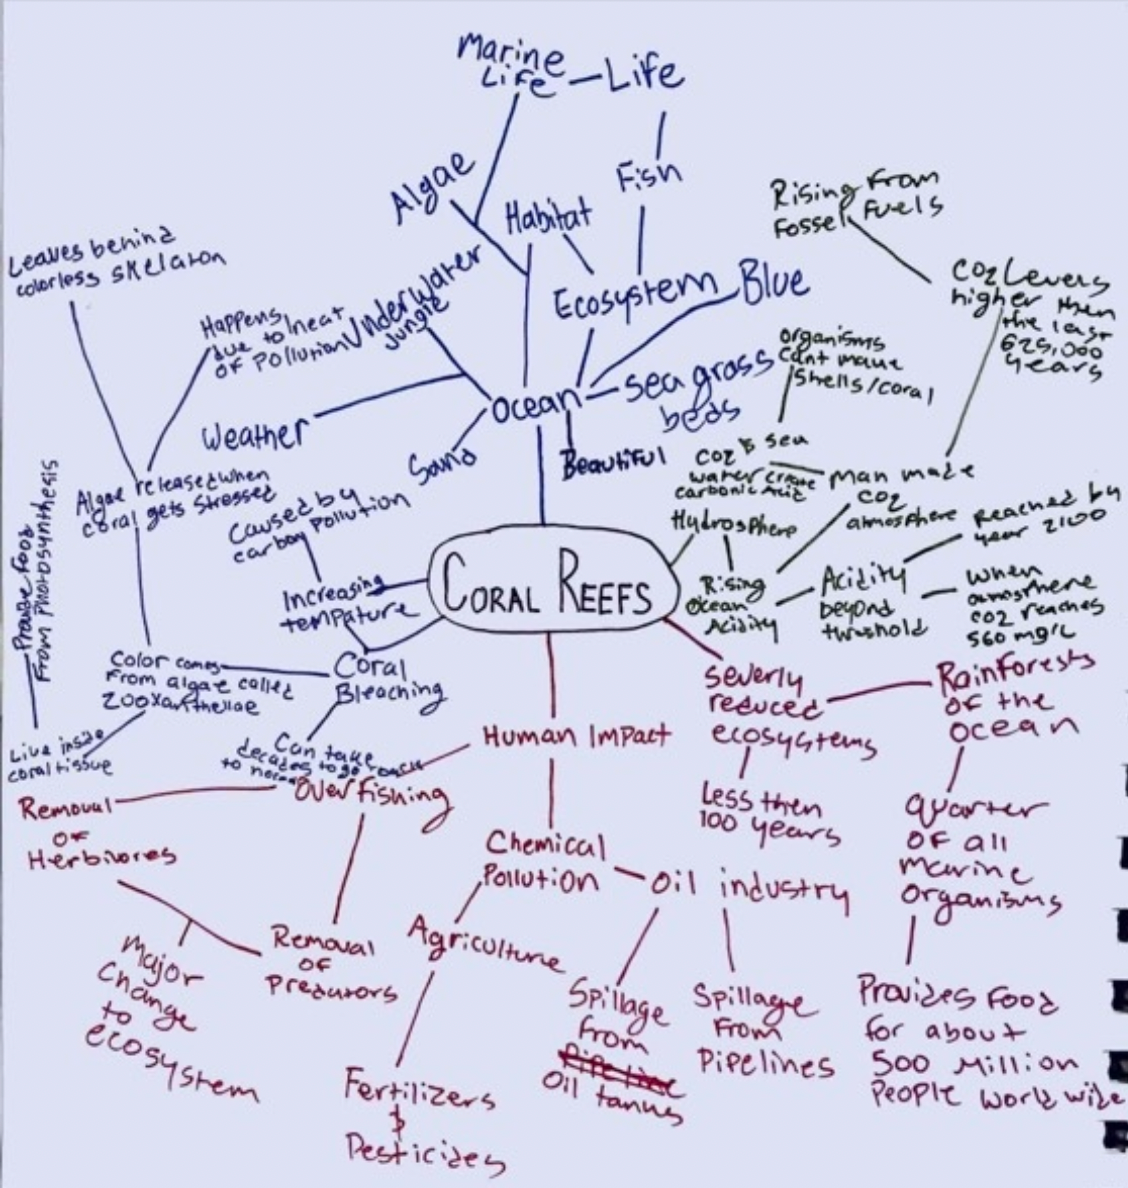 Marine
Life
Life
Algae
Habitat
Fish
Underwater
jungle
Ecosystem
Blue
Weather
Ocean
sea grass
beds
Sand
Beautiful
Rising from
Fossel Fuels
CO2 Levels
higher then
the last
625,000
years
organisms
cant make
shells/coral
CO2 & sea
water create
carbonic Acid
man made
CO2
atmosphere
Hydrosphere
Rising
Ocean
Acidity
Acidity
beyond
threshold
Reached by
year 2100
When
atmosphere
CO2 reaches
560 mg/L
Leaves behind
colorless skelaton
Happens
due to heat
OF Pollution
Algae released when
coral gets stressed
Caused by
carbon pollution
Increasing
tempature
CORAL REEFS
Provide Food
From Photosynthesis
Color comes
From algae called
Zooxanthellae
Coral
Bleaching
Live inside
coral tissue
Can take
decades to go back
to
Human Impact
Over fishing
Removal
OF
Herbivores
Major
Change
to
ecosystem
Removal
OF
Predators
Chemical
Pollution
Oil industry
Agriculture
Fertilizers
&
Pesticides
Spillage
From
Pipeline
Oil tanks
Spillage
From
Pipelines
severly
reduced
ecosystems
Less then
100 years
Rainforests
OF the
Ocean
Quarter
OF all
Marine
Organisms
Provides Food
for about
500 Million
People world wide